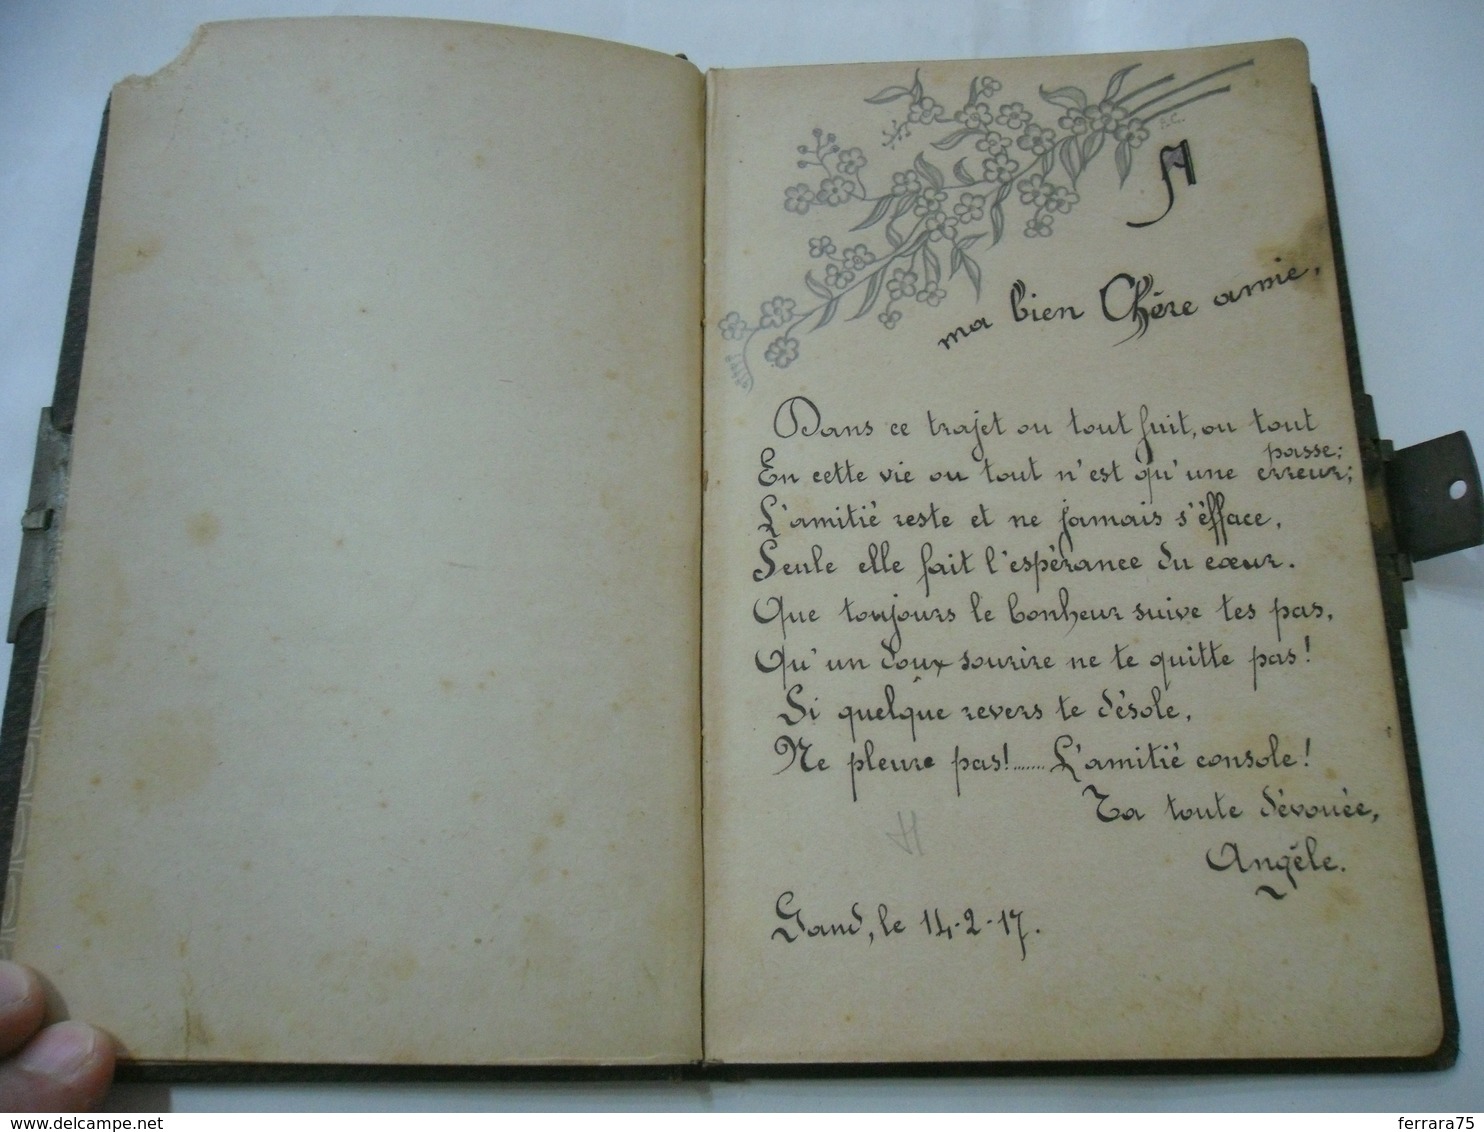 A
ma bien Chère amie,
Dans ce trajet ou tout fuit, ou tout
passe;
En cette vie ou tout n'est qu'une erreur;
L'amitié reste et ne jamais s'éfface,
Seule elle fait l'espérance du cœur.
Que toujours le bonheur suive tes pas,
Qu'un doux sourire ne te quitte pas!
Si quelque revers te désole,
Ne pleure pas!....... L'amitié console!
Ta toute dévouée,
Angèle.
Gand, le 14-2-17.
www.delcampe.net
ferrara75